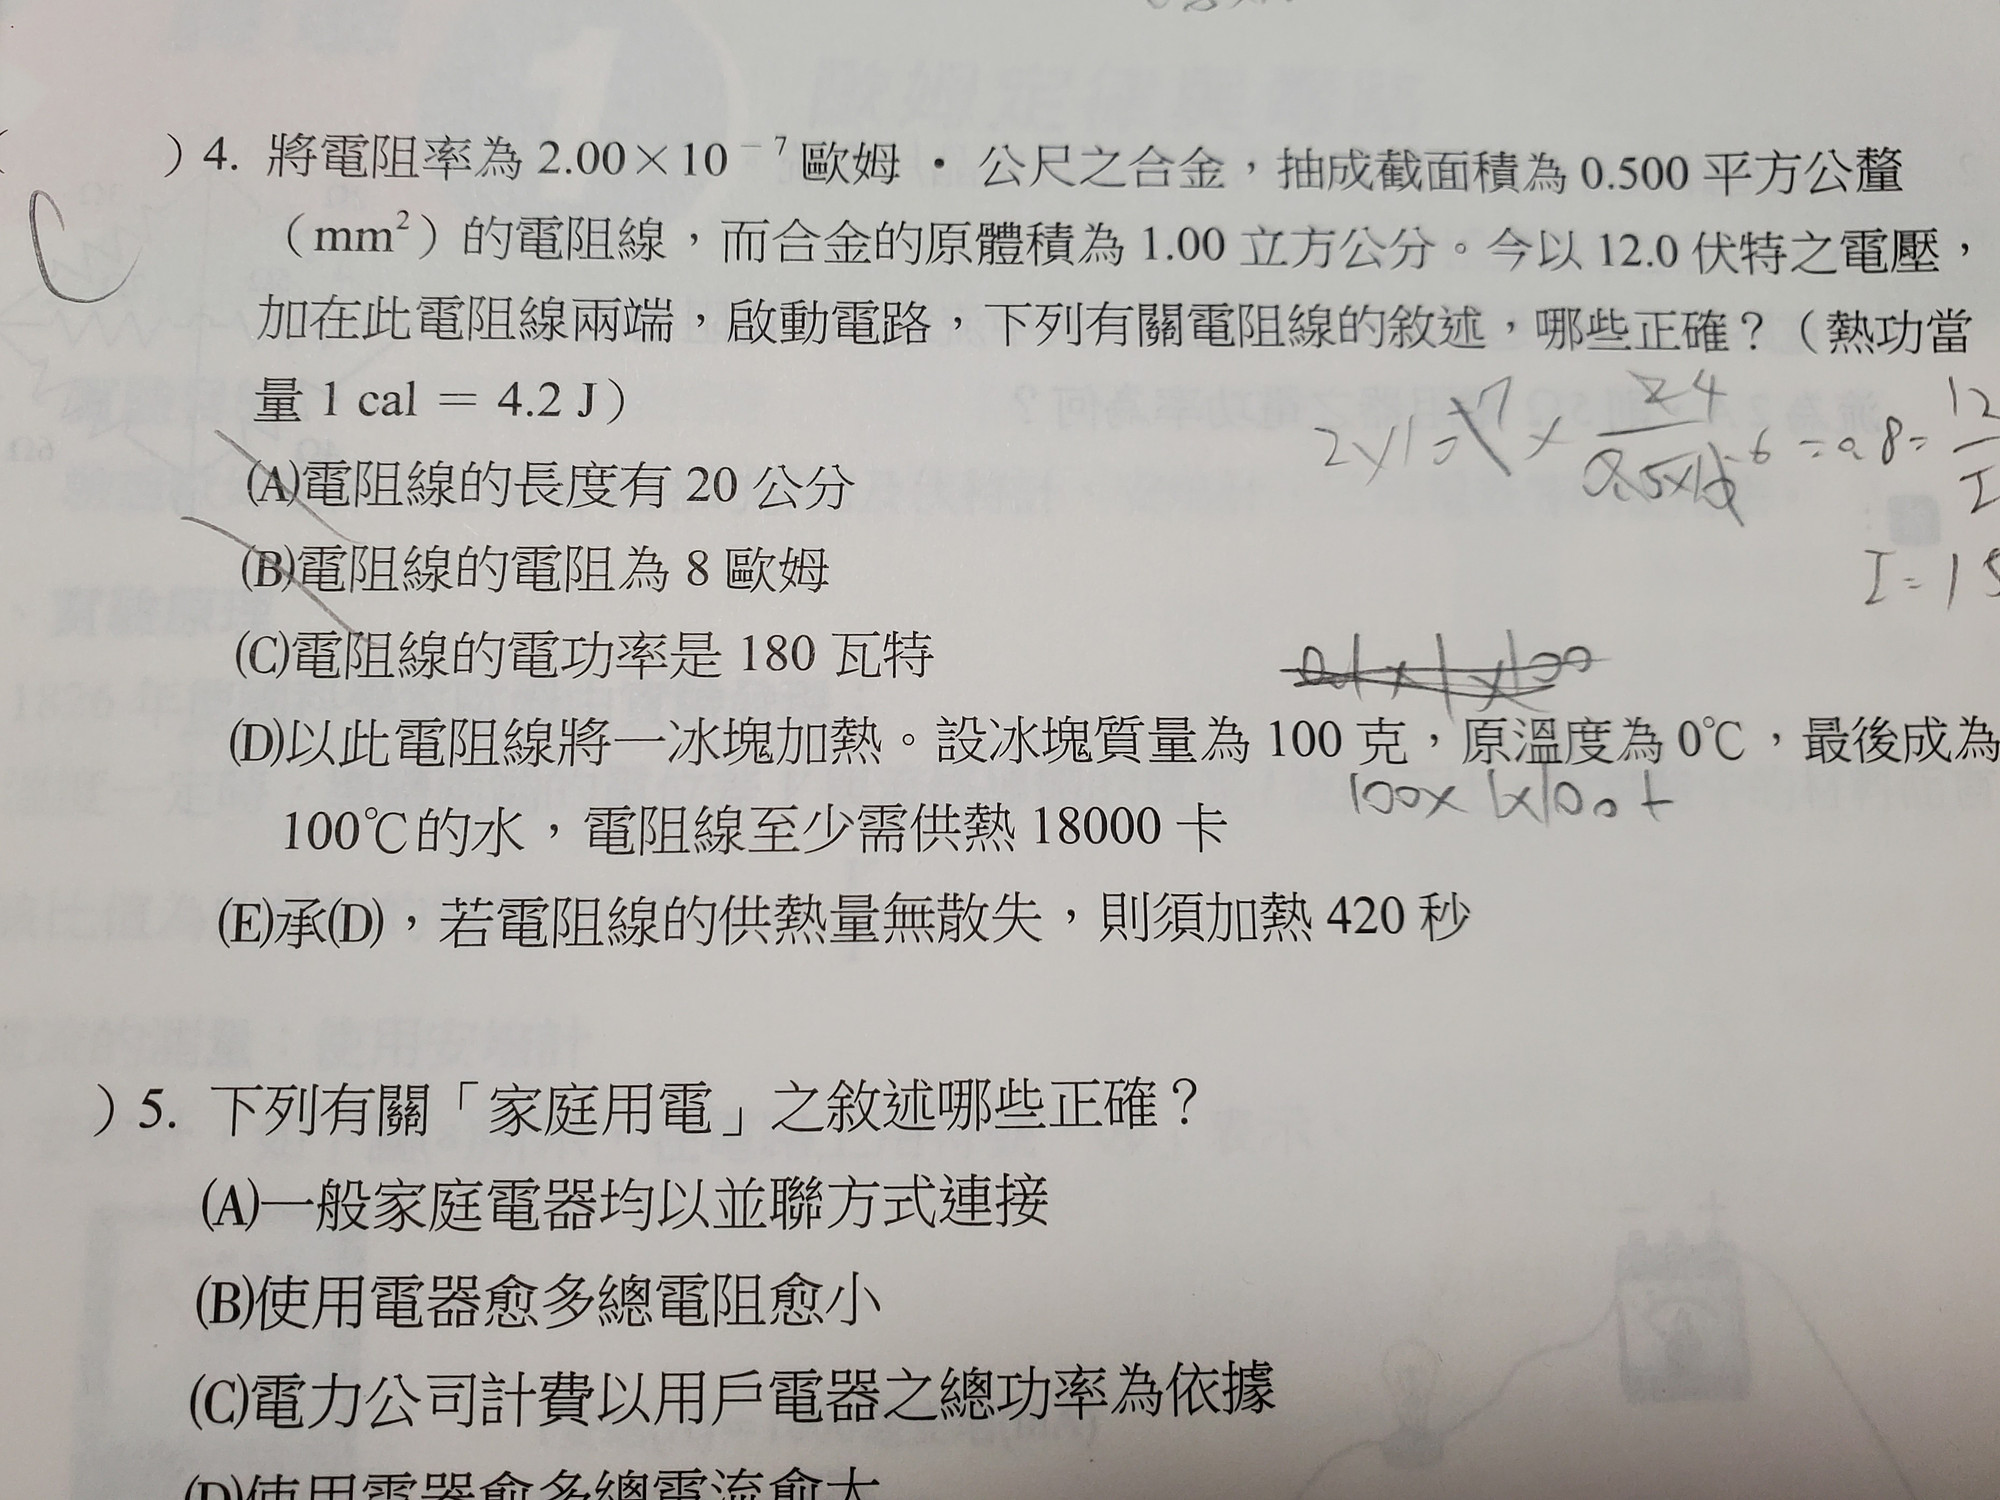 )4. 將電阻率為 2.00×10⁻⁷ 歐姆・公尺之合金，抽成截面積為 0.500 平方公釐
（mm²）的電阻線，而合金的原體積為 1.00 立方公分。今以 12.0 伏特之電壓，
加在此電阻線兩端，啟動電路，下列有關電阻線的敘述，哪些正確？（熱功當
量 1 cal ＝ 4.2 J）
C
(A)電阻線的長度有 20 公分
(B)電阻線的電阻為 8 歐姆
(C)電阻線的電功率是 180 瓦特
(D)以此電阻線將一冰塊加熱。設冰塊質量為 100 克，原溫度為 0℃，最後成為
100×1×100+
100℃的水，電阻線至少需供熱 18000 卡
(E)承(D)，若電阻線的供熱量無散失，則須加熱 420 秒
)5. 下列有關「家庭用電」之敘述哪些正確？
(A)一般家庭電器均以並聯方式連接
(B)使用電器愈多總電阻愈小
(C)電力公司計費以用戶電器之總功率為依據
(D)使用電器愈多總電流愈大